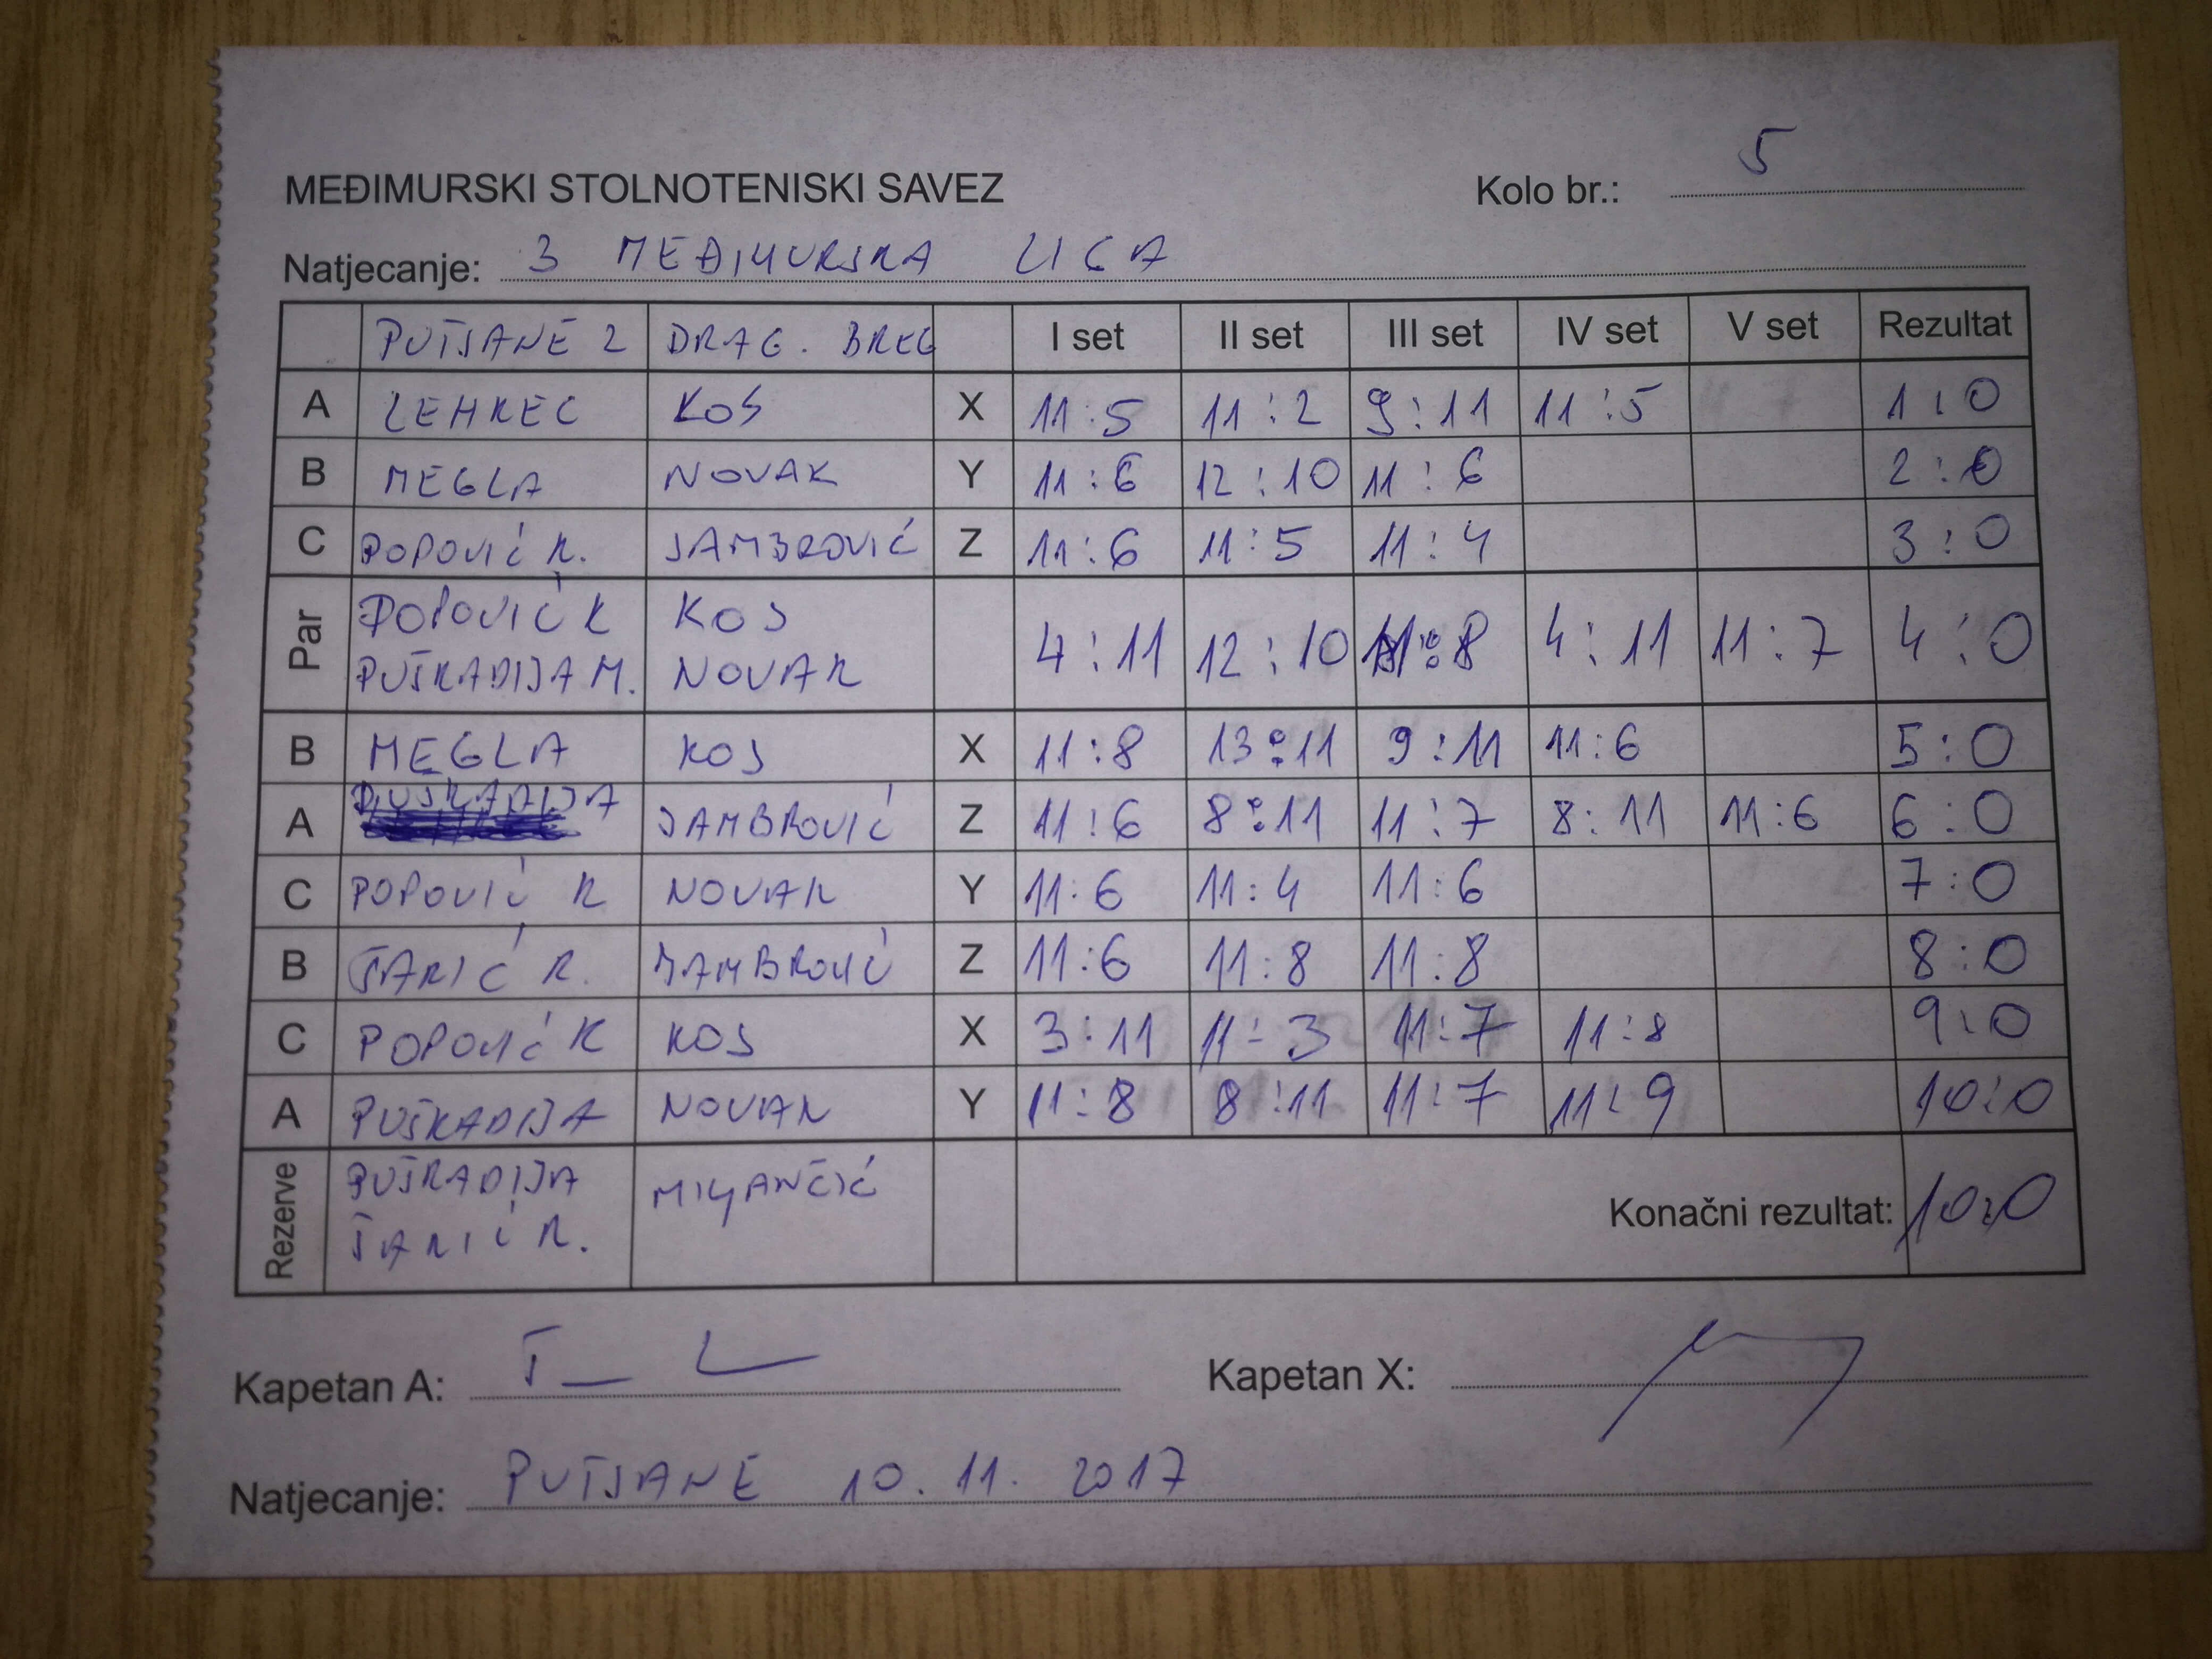 MEĐIMURSKI STOLNOTENISKI SAVEZ
Kolo br.: 5
Natjecanje: 3 MEĐIMURSKA LIGA
PUŠĆANE 2 DRAG. BREG I set II set III set IV set V set Rezultat
A LEHKEC KOS X 11:5 11:2 9:11 11:5 1:0
B MEGLA NOVAK Y 11:6 12:10 11:6 2:0
C POPOVIĆ K. JAMBROVIĆ Z 11:6 11:5 11:4 3:0
Par POPOVIĆ K KOS 4:11 12:10 11:8 4:11 11:7 4:0
PUŠKADIJA M. NOVAK
B MEGLA KOS X 11:8 13:11 9:11 11:6 5:0
A PUŠKADIJA JAMBROVIĆ Z 11:6 8:11 11:7 8:11 11:6 6:0
C POPOVIĆ K NOVAK Y 11:6 11:4 11:6 7:0
B ŠARIĆ R. JAMBROVIĆ Z 11:6 11:8 11:8 8:0
C POPOVIĆ K KOS X 3:11 11:3 11:7 11:8 9:0
A PUŠKADIJA NOVAK Y 11:8 8:11 11:7 11:9 10:0
Rezerve PUŠKADIJA
ŠARIĆ R.
Konačni rezultat: 10:0
Kapetan A: Kapetan X:
Natjecanje: 10.11.2017